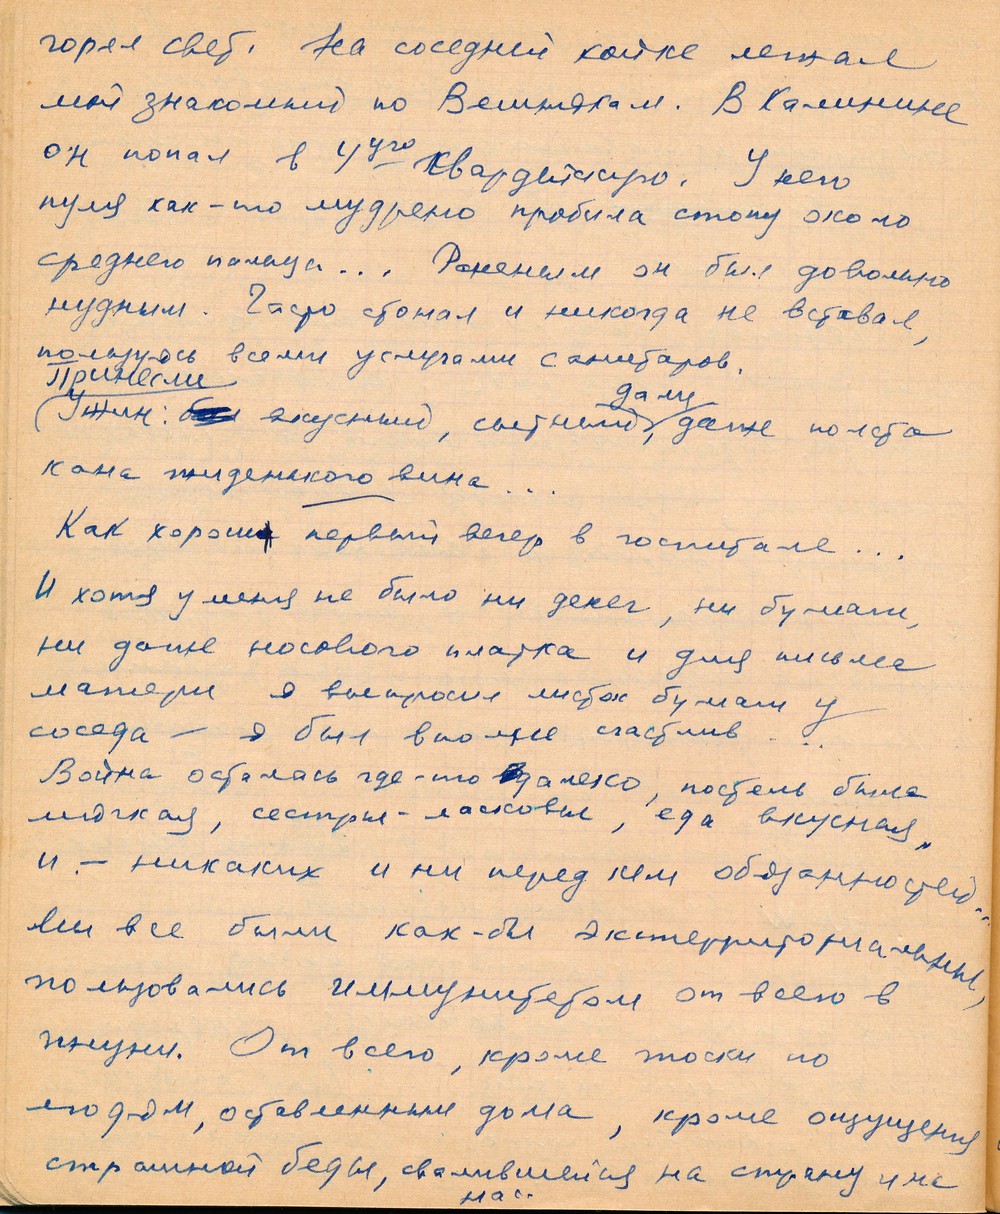 горел свет. На соседней койке лежал
мой знакомый по Вешнякам. В Калинине
он попал в 44ую Гвардейскую. У него
пуля как-то мудрено пробила стопу около
среднего пальца... Раненым он был довольно
нудным. Часто стонал и никогда не вставал,
пользуясь всеми услугами санитаров.
Принесли
дали
(Ужин: вкусный, сытный, даже полста
кана жиденького вина...
Как хорош первый вечер в госпитале...
И хотя у меня не было ни денег, ни бумаги,
ни даже носового платка и для письма
матери я выпросил листок бумаги у
соседа – я был вполне счастлив...
Война осталась где-то далеко, постель была
мягкая, сестры - ласковы, еда вкусная,
и – никаких и ни перед кем обязанностей...
Мы все были как-бы экстерриториальны,
пользовались иммунитетом от всего в
жизни. От всего, кроме тоски по
людям, оставленным дома, кроме ощущения
страшной беды, свалившейся на страну и на
нас.